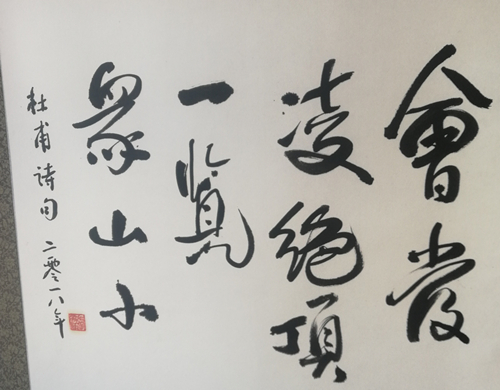 會當
凌絶頂
一覽
衆山小
杜甫詩句 二零一八年